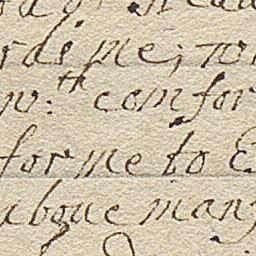 rds me; wi
w:th comfor
for me to E
aboue many